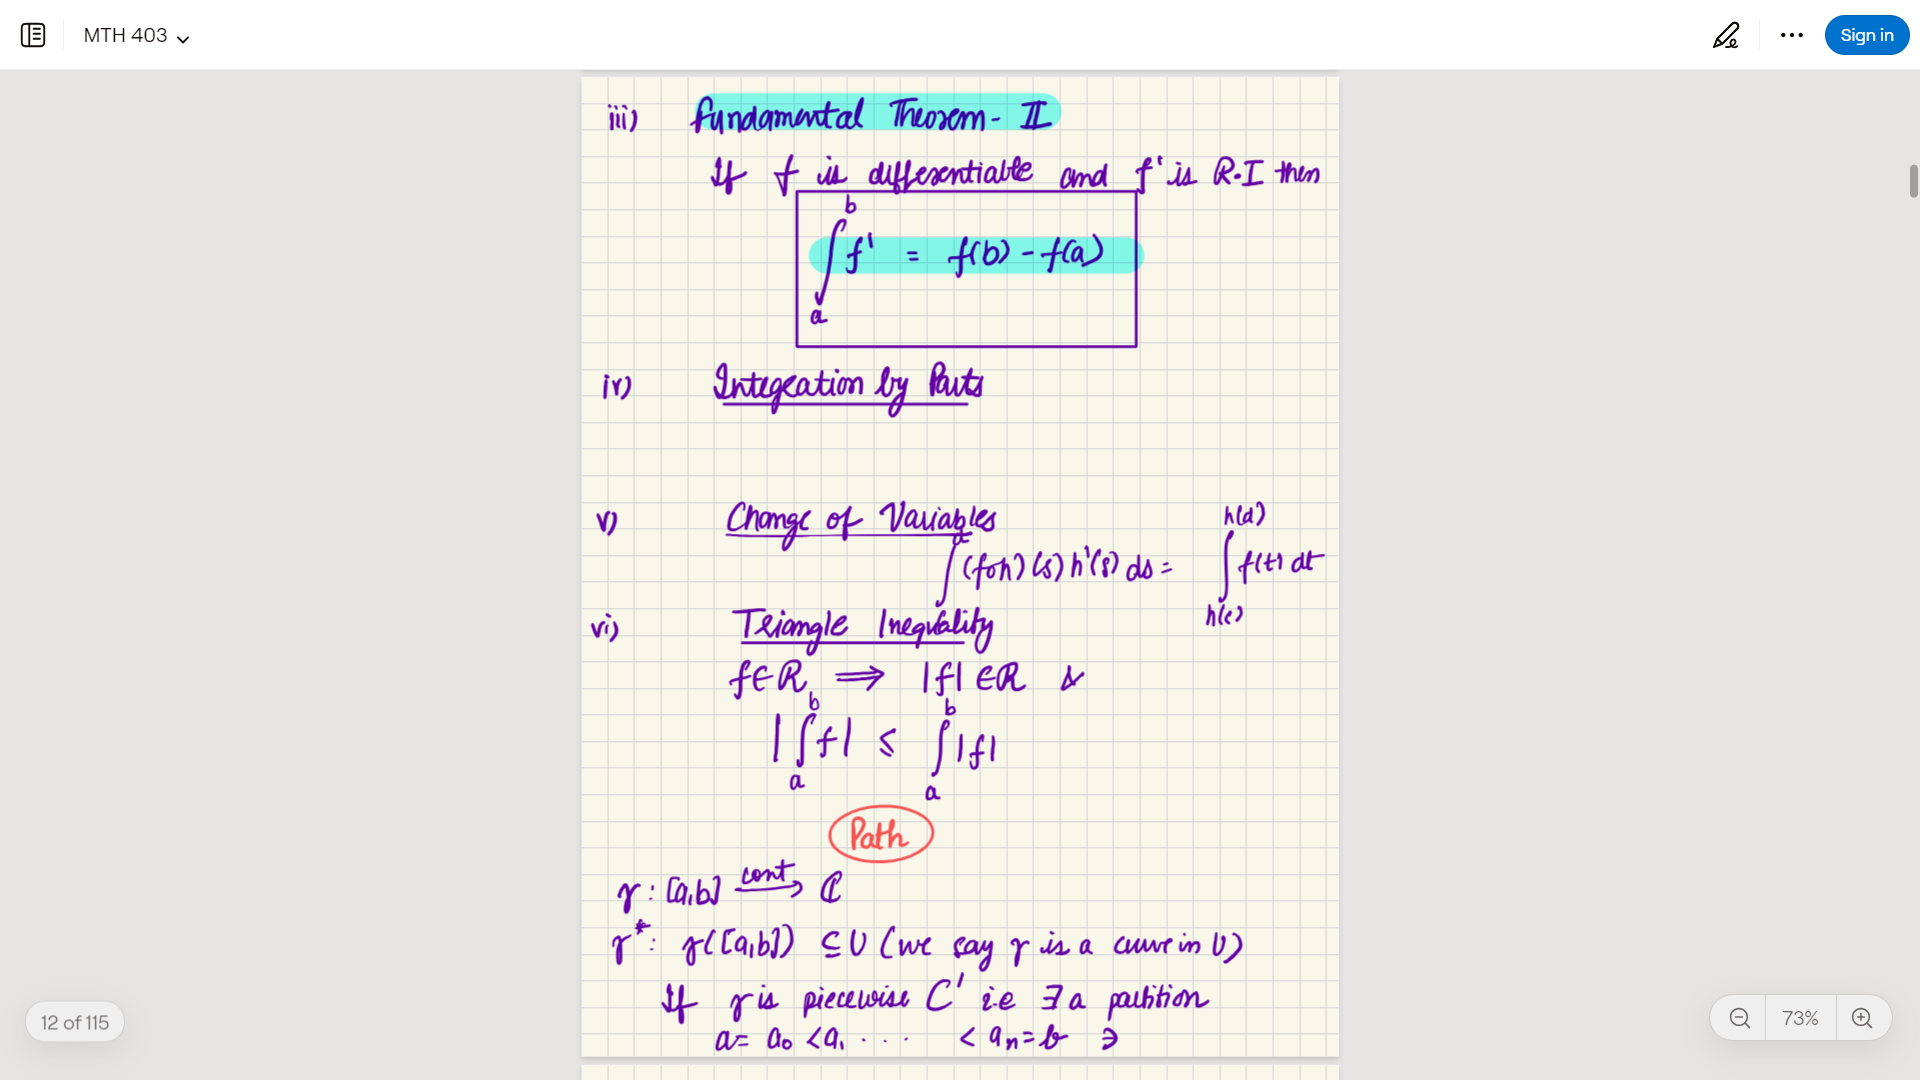 MTH 403
Sign in
iii) Fundamental Theorem - II
If f is differentiable and f' is R.I then
∫_a^b f' = f(b) - f(a)
iv) Integration by Parts
v) Change of Variables
∫^d (foh)(s) h'(s) ds = ∫_{h(c)}^{h(d)} f(t) dt
vi) Triangle Inequality
f ∈ R ⟹ |f| ∈ R &
|∫_a^b f| ≤ ∫_a^b |f|
Path
γ : [a,b] cont→ ℂ
γ* : γ([a,b]) ⊆ U (we say γ is a curve in U)
If γ is piecewise C' i.e ∃ a partition
a = a₀ < a₁ .... < aₙ = b ∋
12 of 115
73%